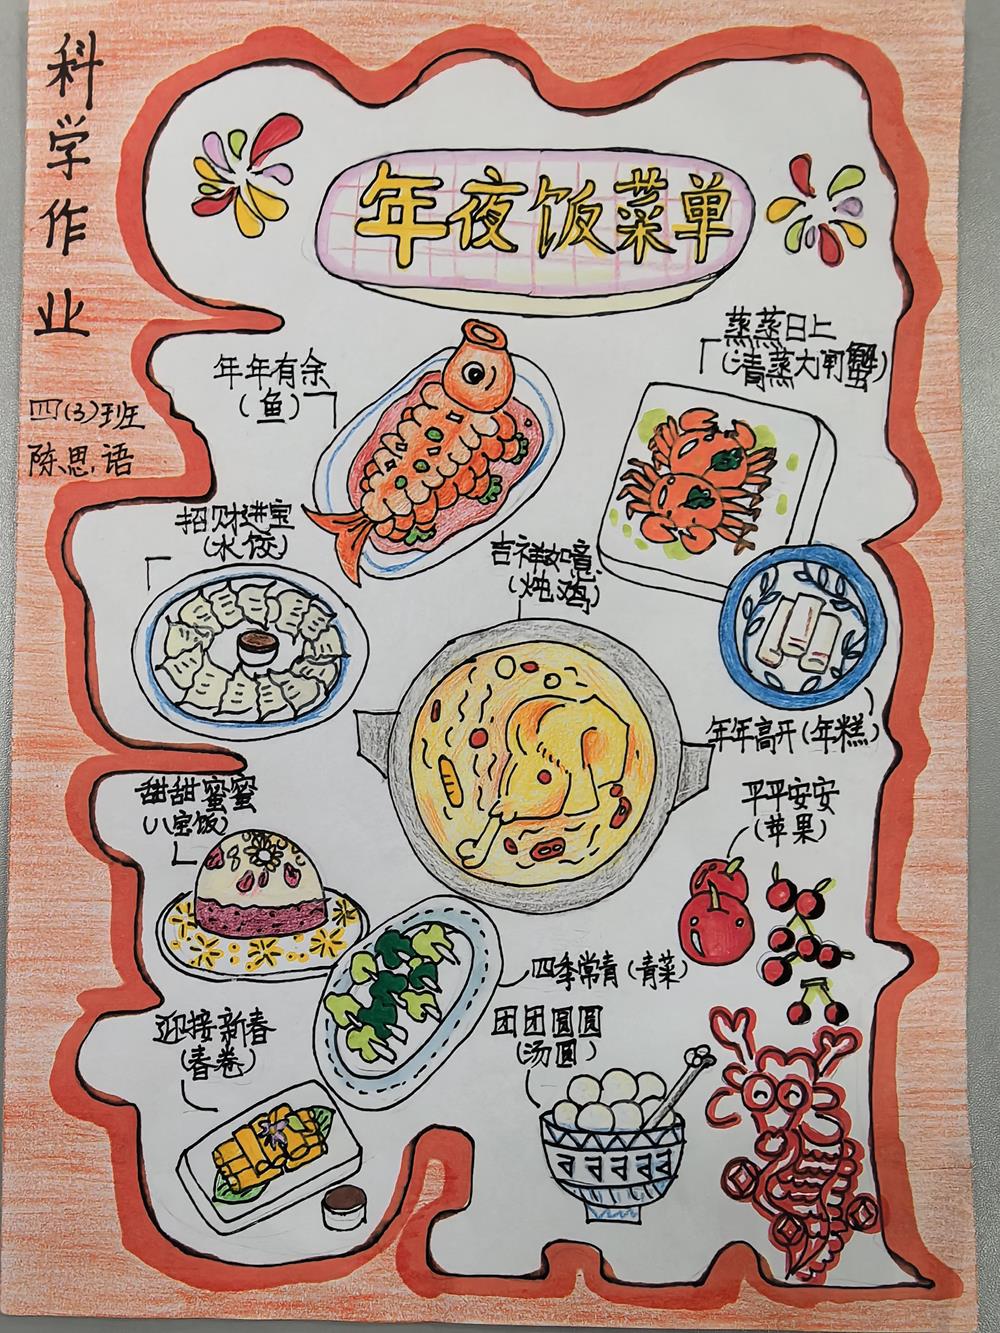 科学作业
四(3)班
陈思语
年夜饭菜单
年年有余
(鱼)
蒸蒸日上
(清蒸大闸蟹)
招财进宝
(水饺)
吉祥如意
(炖鸡)
年年高升(年糕)
甜甜蜜蜜
(八宝饭)
平平安安
(苹果)
四季常青(青菜)
迎接新春
(春卷)
团团圆圆
(汤圆)